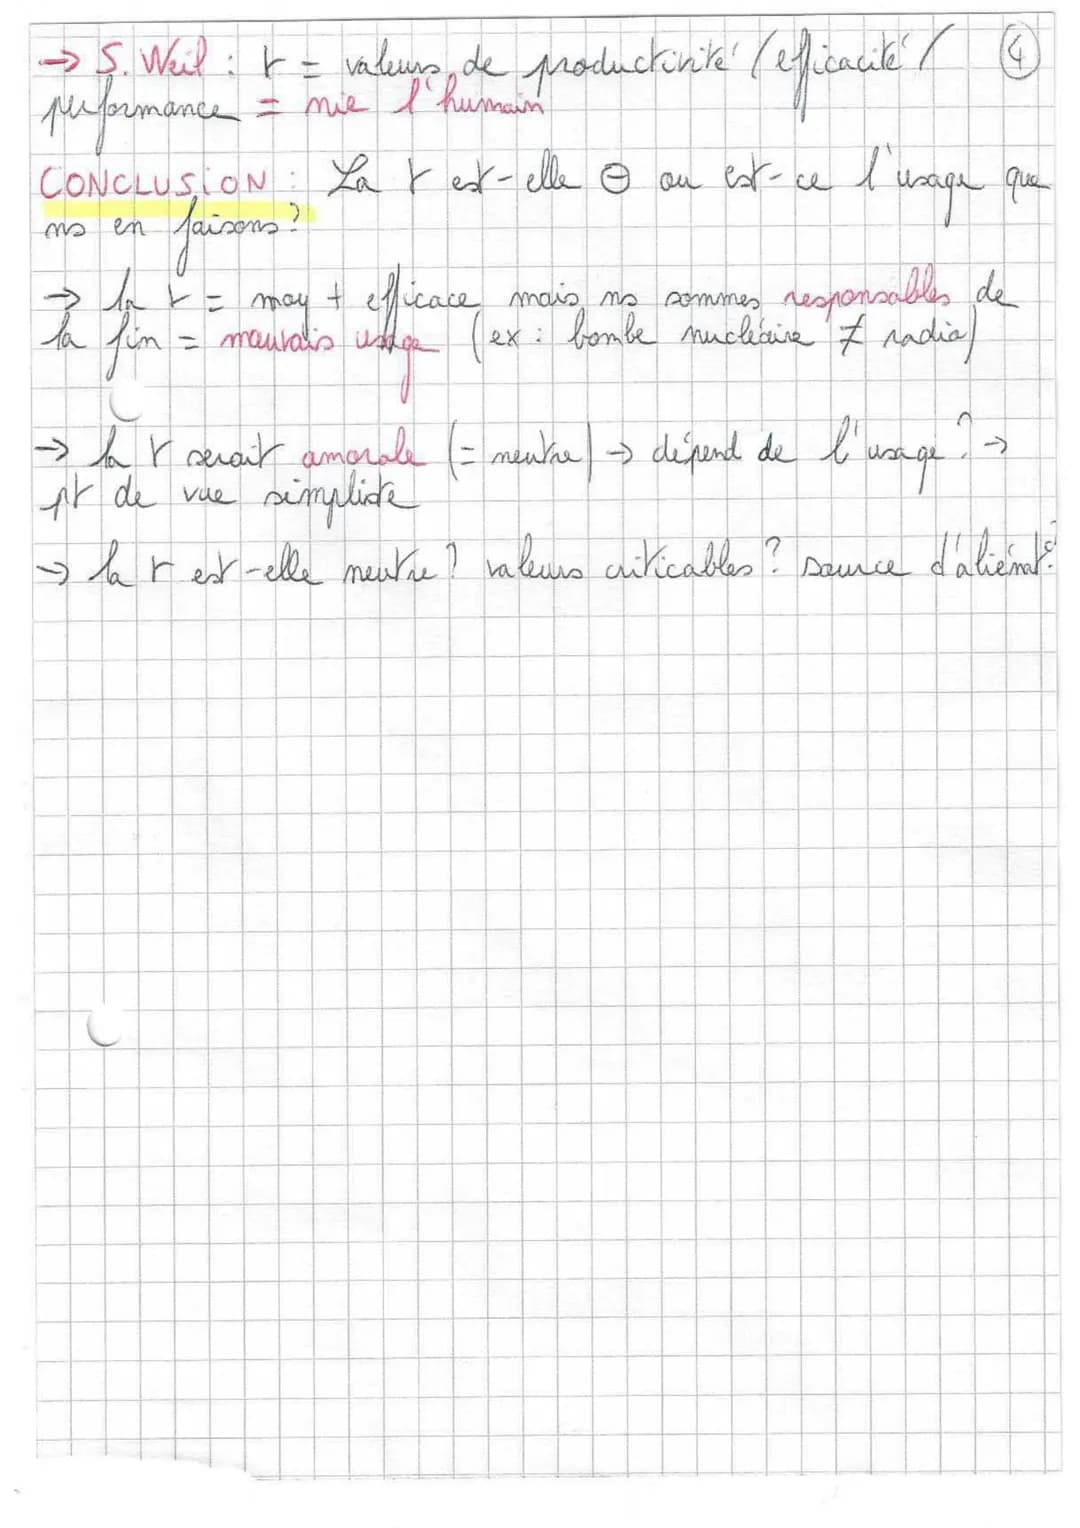 → S. Weil : t = valeurs de productivité / efficacité / ④
performance = nie l'humain
CONCLUSION : La t est-elle ⊖ ou est-ce l'usage que
ns en faisons ?
→ la t = moy + efficace mais ns sommes responsables de
la fin = mauvais usage (ex : bombe nucléaire ≠ radio)
→ la t serait amorale (= neutre) → dépend de l'usage ? →
pt de vue simpliste
→ la t est-elle neutre ? valeurs criticables ? source d'aliénat° ?